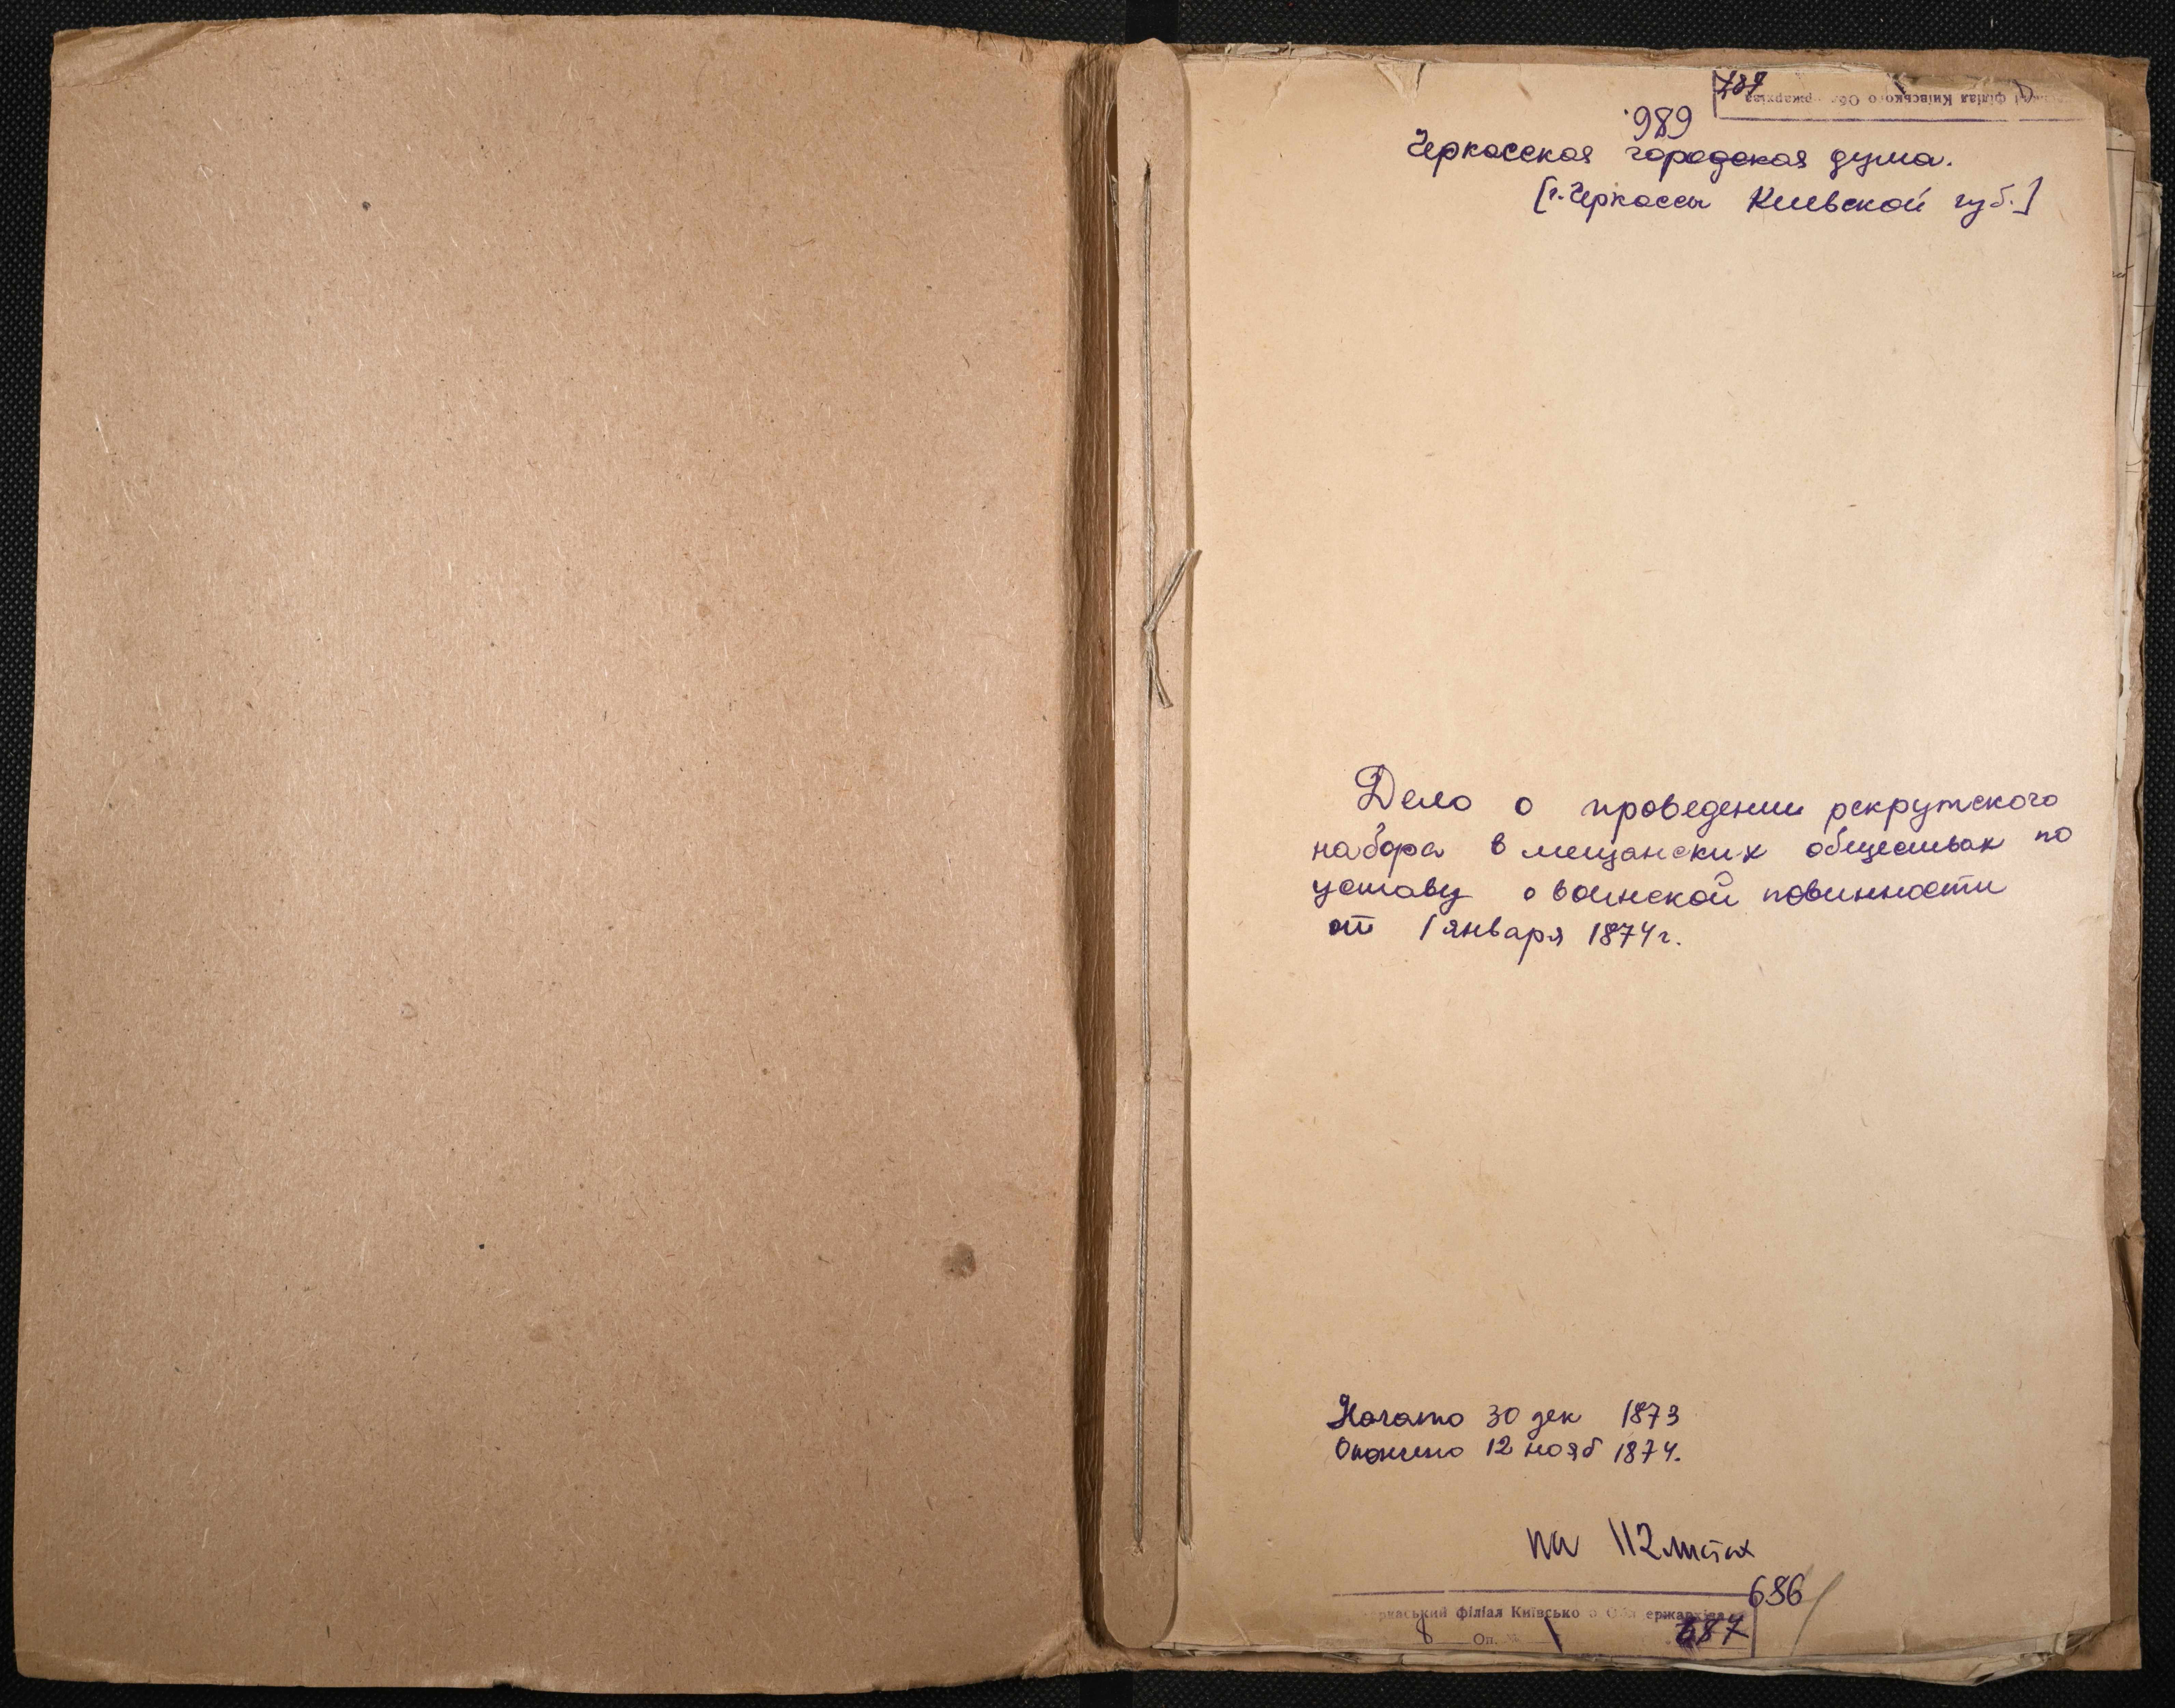 787
філіал Київського Об
989
Черкасская городская дума.
[г. Черкассы Киевской губ.]
Дело о проведении рекрутского
набора в мещанских обществах по
уставу о воинской повинности
от 1 января 1874 г.
Начато 30 дек 1873
Окончено 12 нояб 1874.
на 112 листах
686
ркаський філіал Київсько о Обл ержархіва
8 Оп. № 1 687